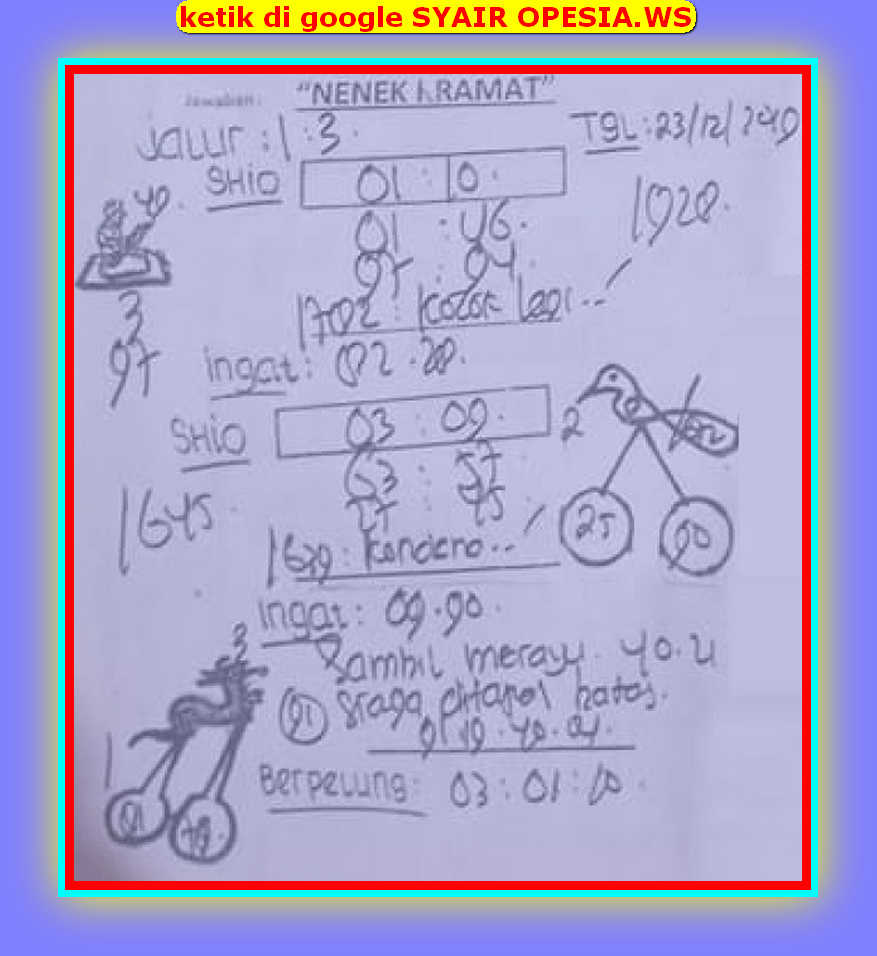 ketik di google SYAIR OPESIA.WS
Jawaban :
"NENEK KRAMAT"
Jalur : 1 : 3.
TGL : 23/12/2019
SHIO 01 : 10.
40.
01 : 46.
1020.
97 : 94.
3
1702 : kolok lagi..!
97
ingat : 02 . 20.
SHIO 03 : 09.
2
63 : 57
27 : 75
1645.
25
90
1679 : kendero..!
ingat : 09.90.
3
2
Sambil merayu. 40.21
91 siaga ditapel batas.
9 19.40.04.
1
Berpelung : 03 : 01 : 10.
01
19.